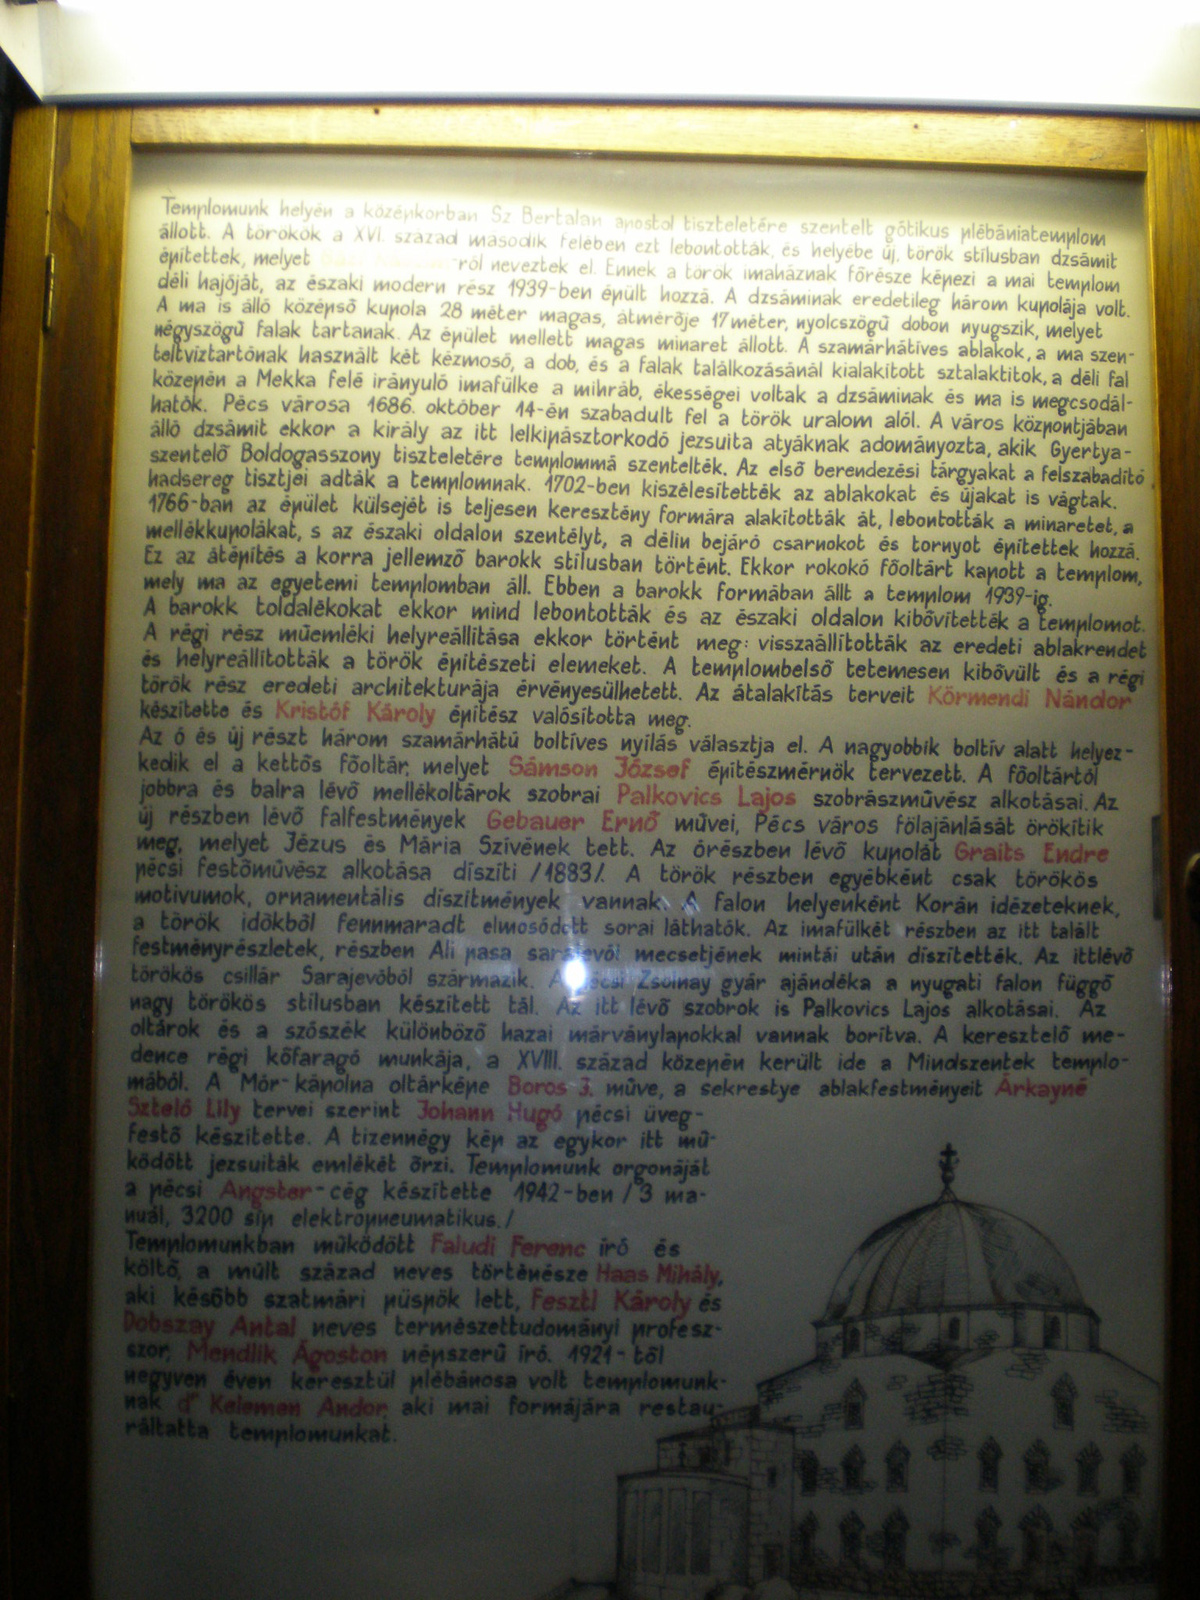 Templomunk helyén a középkorban Sz Bertalan apostol tiszteletére szentelt gótikus plébániatemplom
állott. A törökök a XVI. század második felében ezt lebontották, és helyébe új, török stílusban dzsámit
építettek, melyet -ról neveztek el. Ennek a török imaháznak főrésze képezi a mai templom
déli hajóját, az északi modern rész 1939-ben épült hozzá. A dzsáminak eredetileg három kupolája volt.
A ma is álló középső kupola 28 méter magas, átmérője 17 méter, nyolcszögű dobon nyugszik, melyet
négyszögű falak tartanak. Az épület mellett magas minaret állott. A szamárhátíves ablakok, a ma szen-
teltvíztartónak használt két kézmosó, a dob, és a falak találkozásánál kialakított sztalaktitok, a déli fal
közepén a Mekka felé irányuló imafülke a mihráb, ékességei voltak a dzsáminak és ma is megcsodál-
hatók. Pécs városa 1686. október 14-én szabadult fel a török uralom alól. A város központjában
álló dzsámit ekkor a király az itt lelkipásztorkodó jezsuita atyáknak adományozta, akik Gyertya-
szentelő Boldogasszony tiszteletére templommá szentelték. Az első berendezési tárgyakat a felszabadító
hadsereg tisztjei adták a templomnak. 1702-ben kiszélesítették az ablakokat és újakat is vágtak.
1766-ban az épület külsejét is teljesen keresztény formára alakították át, lebontották a minaretet, a
mellékkupolákat, s az északi oldalon szentélyt, a délin bejáró csarnokot és tornyot építettek hozzá.
Ez az átépítés a korra jellemző barokk stílusban történt. Ekkor rokokó főoltárt kapott a templom,
mely ma az egyetemi templomban áll. Ebben a barokk formában állt a templom 1939-ig.
A barokk toldalékokat ekkor mind lebontották és az északi oldalon kibővítették a templomot.
A régi rész műemléki helyreállítása ekkor történt meg: visszaállították az eredeti ablakrendet
és helyreállították a török építészeti elemeket. A templombelső tetemesen kibővült és a régi
török rész eredeti architekturája érvényesülhetett. Az átalakítás terveit Körmendi Nándor
készítette és Kristóf Károly építész valósította meg.
Az ó és új részt három szamárhátú boltíves nyílás választja el. A nagyobbik boltív alatt helyez-
kedik el a kettős főoltár, melyet Sámson József építészmérnök tervezett. A főoltártól
jobbra és balra lévő mellékoltárok szobrai Palkovics Lajos szobrászművész alkotásai. Az
új részben lévő falfestmények Gebauer Ernő művei, Pécs város fölajánlását örökítik
meg, melyet Jézus és Mária Szívének tett. Az órészben lévő kupolát Graits Endre
pécsi festőművész alkotása díszíti /1883/. A török részben egyébként csak törökös
motivumok, ornamentális díszítmények vannak. A falon helyenként Korán idézeteknek,
a török időkből fennmaradt elmosódott sorai láthatók. Az imafülkét részben az itt talált
festményrészletek, részben Ali pasa sarajevói mecsetjének mintái után díszítették. Az ittlévő
törökös csillár Sarajevóból származik. A pécsi Zsolnay gyár ajándéka a nyugati falon függő
nagy törökös stílusban készített tál. Az itt lévő szobrok is Palkovics Lajos alkotásai. Az
oltárok és a szószék különböző hazai márványlapokkal vannak borítva. A keresztelő me-
dence régi kőfaragó munkája, a XVIII. század közepén került ide a Mindszentek templo-
mából. A Mór-kápolna oltárképe Boros J. műve, a sekrestye ablakfestményeit Árkayné
Szteló Lily tervei szerint Johann Hugó pécsi üveg-
festő készítette. A tizennégy kép az egykor itt mű-
ködött jezsuiták emlékét őrzi. Templomunk orgonáját
a pécsi Angster-cég készítette 1942-ben /3 ma-
nuál, 3200 síp elektropneumatikus./
Templomunkban működött Faludi Ferenc író és
költő, a múlt század neves történésze Haas Mihály,
aki később szatmári püspök lett, Fesztl Károly és
Dobszay Antal neves természettudományi profesz-
szor, Mendlik Ágoston népszerű író. 1921-től
negyven éven keresztül plébánosa volt templomunk-
nak dr Kelemen Andor, aki mai formájára restau-
ráltatta templomunkat.